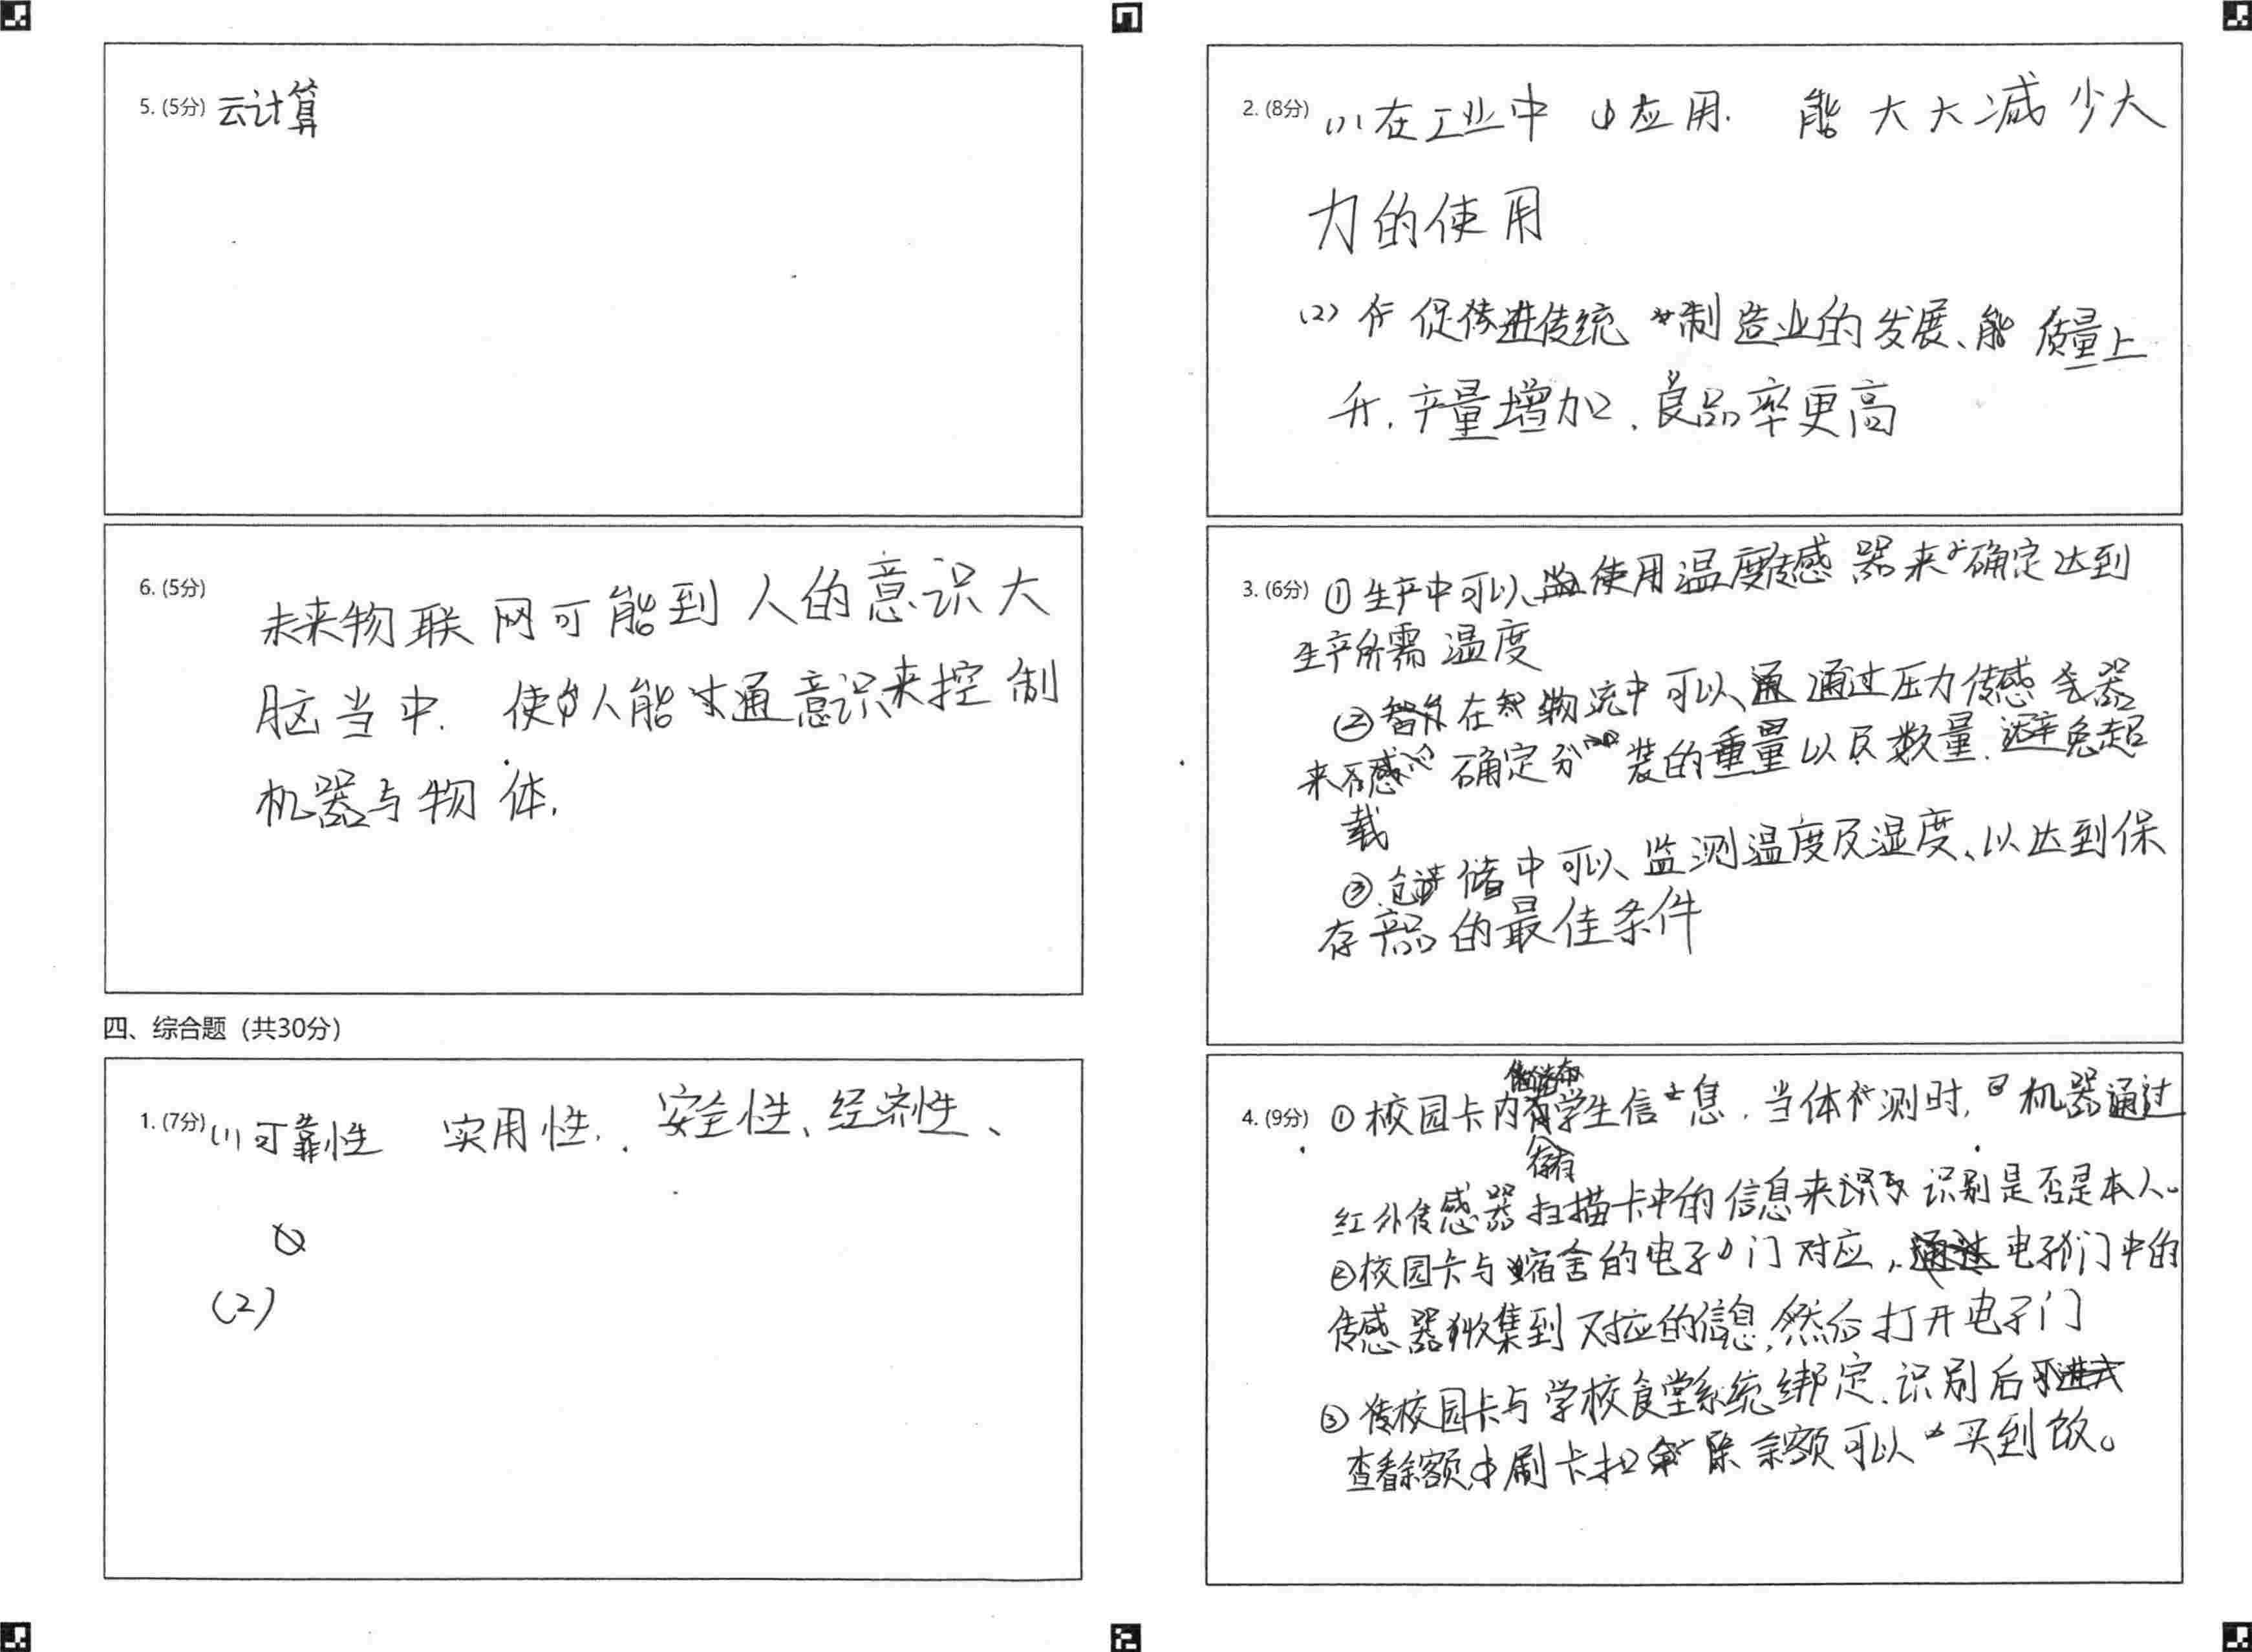 5. (5分) 云计算
6. (5分)
未来物联网可能到人的意识大
脑当中. 使人能通意识来控制
机器与物体.
四、综合题（共30分）
1. (7分) (1) 可靠性 实用性. 安全性、经济性、
(2)
2. (8分) (1) 在工业中应用. 能大大减少大
力的使用
(2) 促进传统制造业的发展、能质量上
升. 产量增加、良品率更高
3. (6分) ① 生产中可以使用温度传感器来确定达到
生产所需温度
② 在物流中可以通过压力传感器
来确定分装的重量以及数量. 避免超
载
③ 仓储中可以监测温度及湿度、以达到保
存产品的最佳条件
4. (9分) ① 校园卡内存有学生信息. 当体测时, 机器通过
红外传感器扫描卡中的信息来识别是否是本人。
② 校园卡与宿舍的电子门对应, 电子门中的
传感器收集到对应的信息, 然后打开电子门
③ 校园卡与学校食堂系统绑定. 识别后可
查看余额, 刷卡扣除余额可以买到饭。